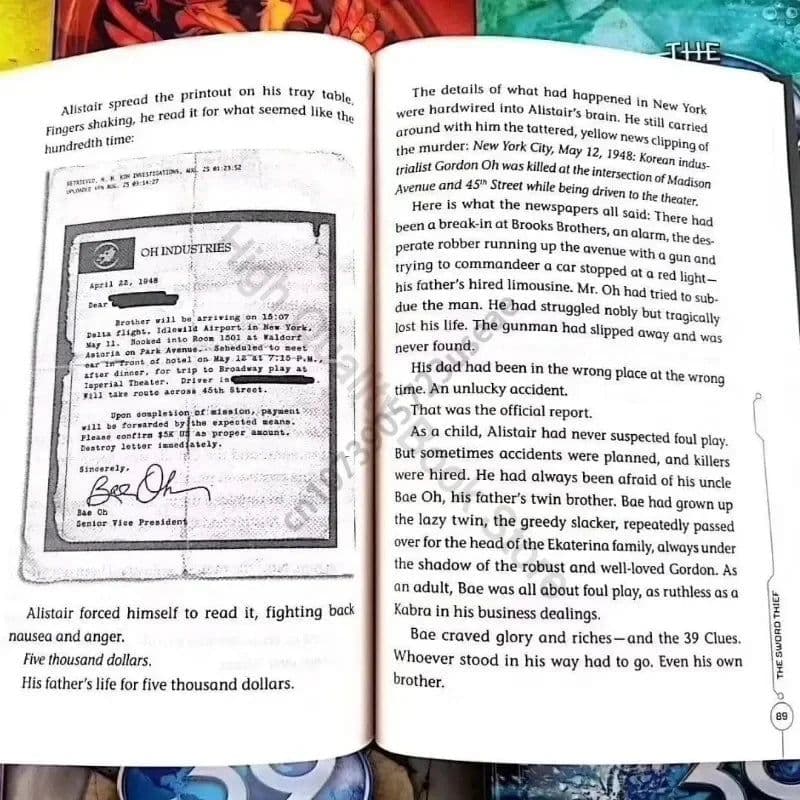 THE
Alistair spread the printout on his tray table.
Fingers shaking, he read it for what seemed like the
hundredth time:
RETRIEVED, H. H. KOH INVESTIGATIONS, AUG. 25 01:23:52
UPLOADED VPN AUG. 25 03:14:27
OH INDUSTRIES
April 22, 1948
Dear
Brother will be arriving on 15:07
Delta flight, Idlewild Airport in New York,
May 11. Booked into Room 1501 at Waldorf
Astoria on Park Avenue. Scheduled to meet
car in front of hotel on May 12 at 7:15 P.M.,
after dinner, for trip to Broadway play at
Imperial Theater. Driver is
Will take route across 45th Street.
Upon completion of mission, payment
will be forwarded by the expected means.
Please confirm $5K US as proper amount.
Destroy letter immediately.
Sincerely,
Bae Oh
Bae Oh
Senior Vice President
Alistair forced himself to read it, fighting back
nausea and anger.
Five thousand dollars.
His father's life for five thousand dollars.
The details of what had happened in New York
were hardwired into Alistair's brain. He still carried
around with him the tattered, yellow news clipping of
the murder: New York City, May 12, 1948: Korean indus-
trialist Gordon Oh was killed at the intersection of Madison
Avenue and 45th Street while being driven to the theater.
Here is what the newspapers all said: There had
been a break-in at Brooks Brothers, an alarm, the des-
perate robber running up the avenue with a gun and
trying to commandeer a car stopped at a red light—
his father's hired limousine. Mr. Oh had tried to sub-
due the man. He had struggled nobly but tragically
lost his life. The gunman had slipped away and was
never found.
His dad had been in the wrong place at the wrong
time. An unlucky accident.
That was the official report.
As a child, Alistair had never suspected foul play.
But sometimes accidents were planned, and killers
were hired. He had always been afraid of his uncle
Bae Oh, his father's twin brother. Bae had grown up
the lazy twin, the greedy slacker, repeatedly passed
over for the head of the Ekaterina family, always under
the shadow of the robust and well-loved Gordon. As
an adult, Bae was all about foul play, as ruthless as a
Kabra in his business dealings.
Bae craved glory and riches—and the 39 Clues.
Whoever stood in his way had to go. Even his own
brother.
THE SWORD THIEF
89
High Quality Book Store
39
39